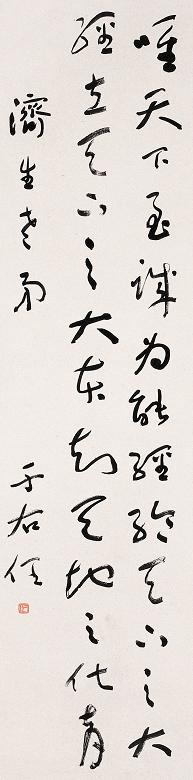 唯天下至誠為能經綸天下之大
經立天下之大本知天地之化育
濟生老弟
于右任